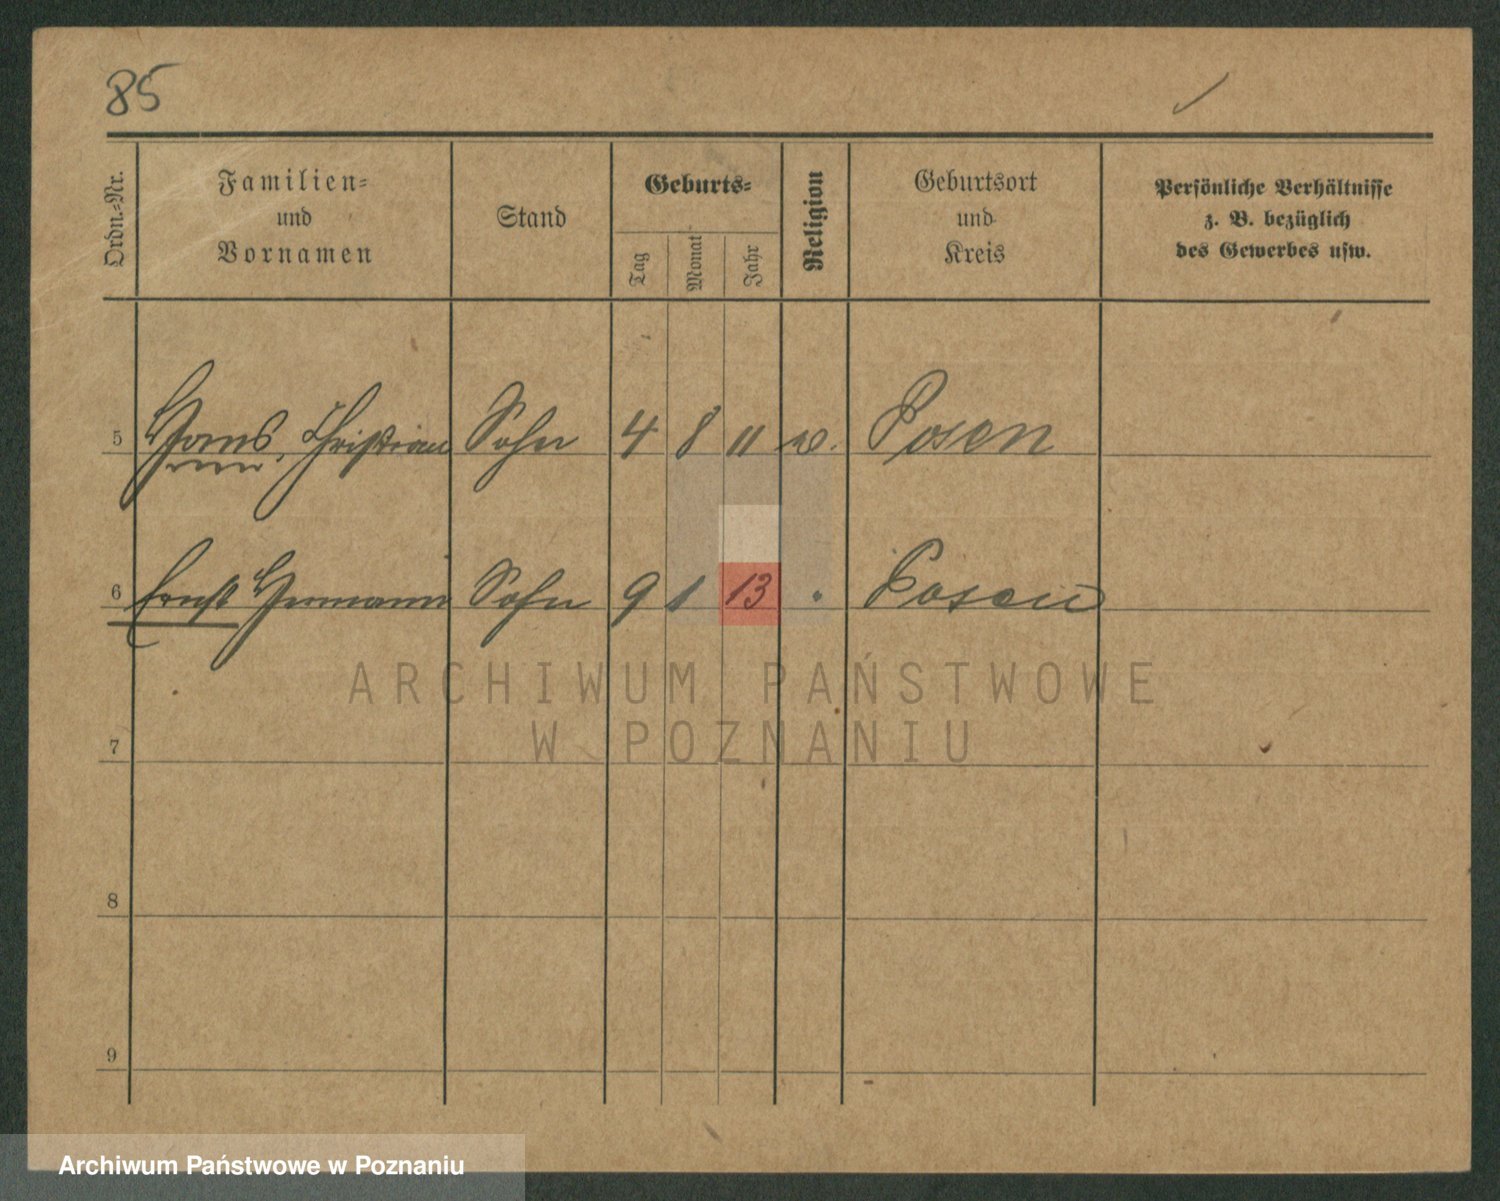 85
Ordn.-Nr.
Familien-
und
Vornamen
Stand
Geburts-
Tag
Monat
Jahr
Religion
Geburtsort
und
Kreis
Persönliche Verhältnisse
z. B. bezüglich
des Gewerbes usw.
5 Hans, Christian Sohn 4 8 11 Posen
6 Ernst Hermann Sohn 9 1 13 " Posen
ARCHIWUM PAŃSTWOWE
W POZNANIU
7
8
9
Archiwum Państwowe w Poznaniu